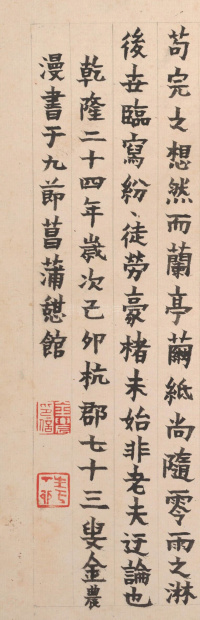 苟完之想然而蘭亭繭紙尚隨零雨之淋
後世臨寫紛〻徒勞豪楮未始非老夫迂論也
乾隆二十四年歲次己卯杭郡七十三叟金農
漫書于九節菖蒲憇館